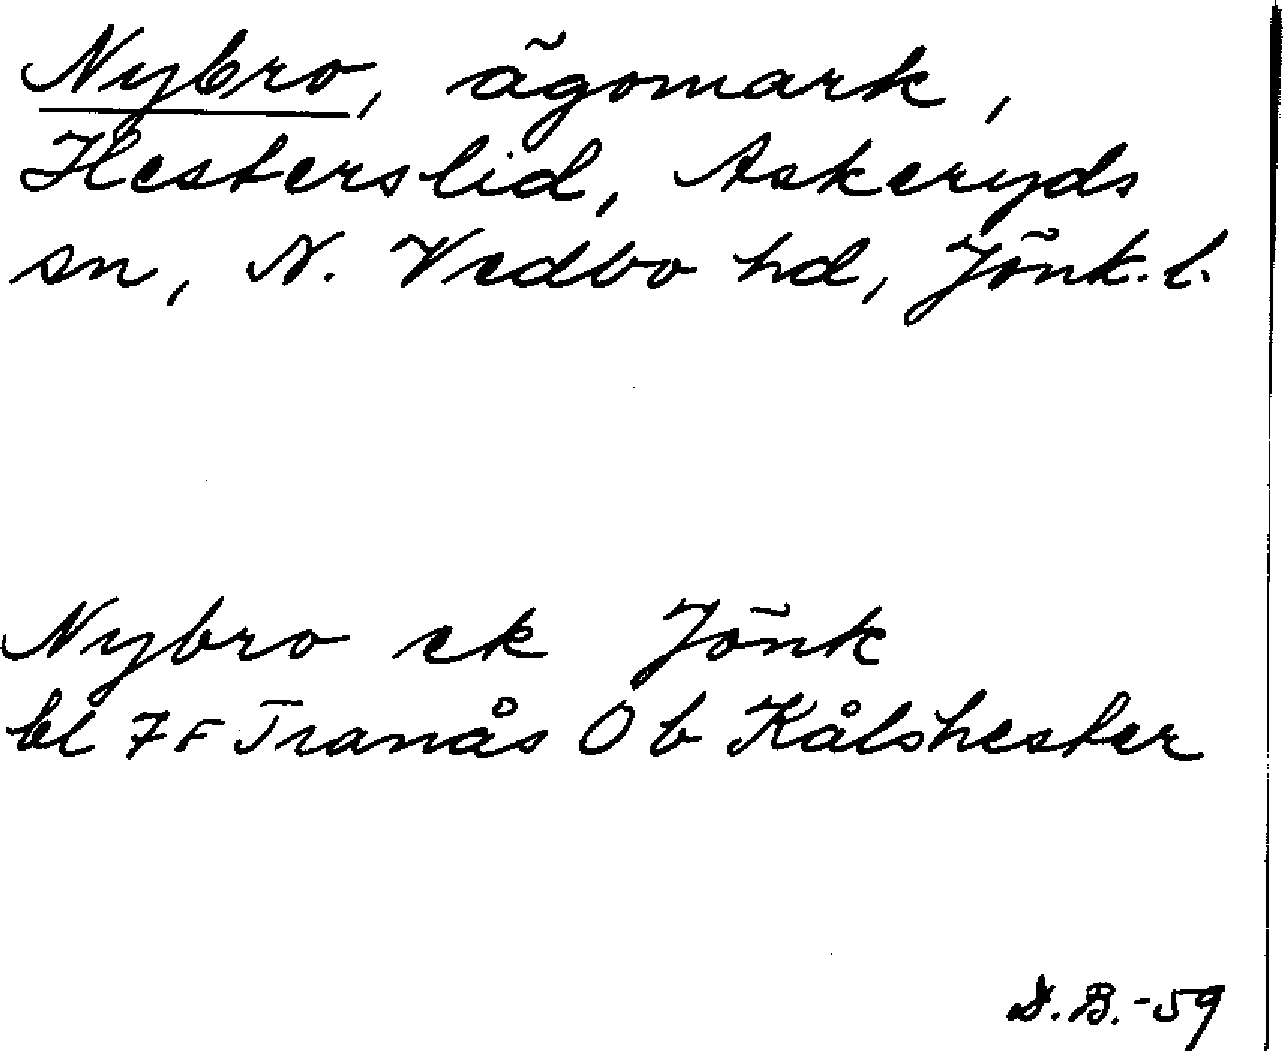 Nybro, ägomark,
Hesterslid, Askeryds
sn, N. Vedbo hd, Jönk. l.
Nybro ek Jönk
bl 7F Tranås Ö b Kålshester
D.B.-59